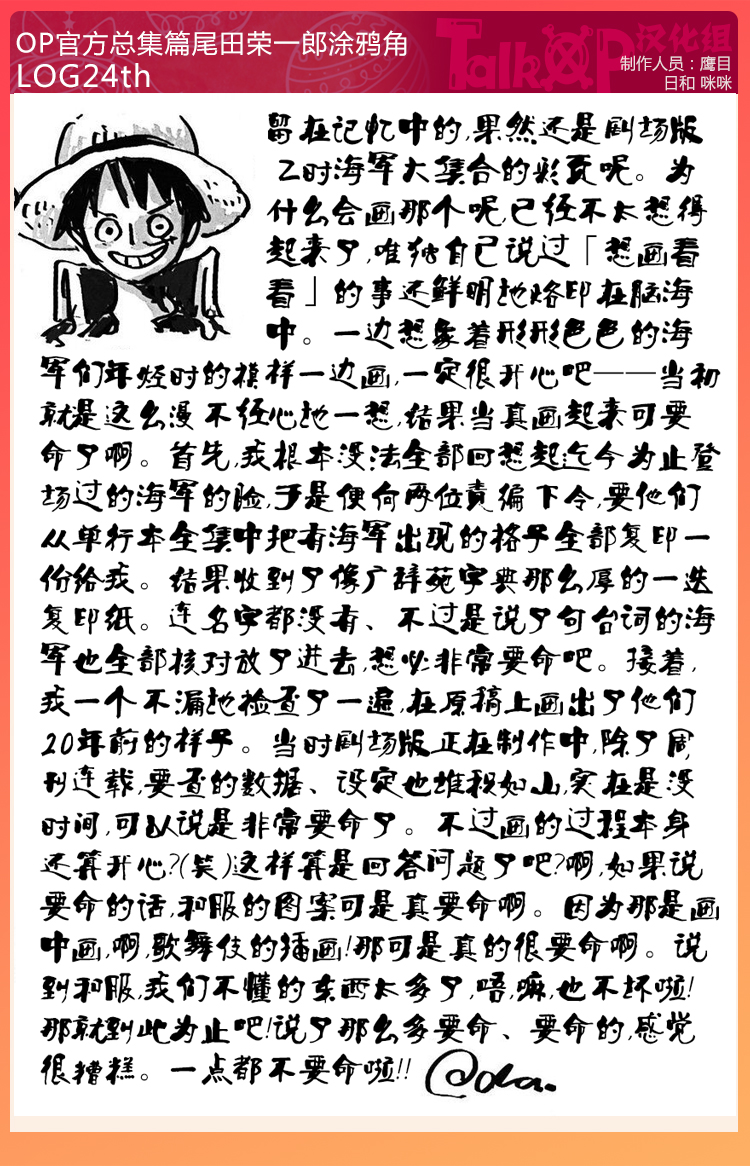 OP官方总集篇尾田荣一郎涂鸦角
LOG24th
TalkOP汉化组
制作人员：鹰目
日和 咪咪
留在记忆中的,果然还是剧场版
Z时海军大集合的彩页呢。为
什么会画那个呢,已经不太想得
起来了,唯独自己说过「想画看
看」的事还鲜明地烙印在脑海
中。一边想象着形形色色的海
军们年轻时的模样一边画,一定很开心吧——当初
就是这么漫不经心地一想,结果当真画起来可要
命了啊。首先,我根本没法全部回想起迄今为止登
场过的海军的脸,于是便向两位责编下令,要他们
从单行本全集中把有海军出现的格子全部复印一
份给我。结果收到了像广辞苑字典那么厚的一迭
复印纸。连名字都没有、不过是说了句台词的海
军也全部核对放了进去,想必非常要命吧。接着,
我一个不漏地检查了一遍,在原稿上画出了他们
20年前的样子。当时剧场版正在制作中,除了周
刊连载,要查的数据、设定也堆积如山,实在是没
时间,可以说是非常要命了。不过画的过程本身
还算开心?(笑)这样算是回答问题了吧?啊,如果说
要命的话,和服的图案可是真要命啊。因为那是画
中画,啊,歌舞伎的插画!那可是真的很要命啊。说
到和服,我们不懂的东西太多了,唔,嘛,也不坏啦!
那就到此为止吧!说了那么多要命、要命的,感觉
很糟糕。一点都不要命啦!! @da.